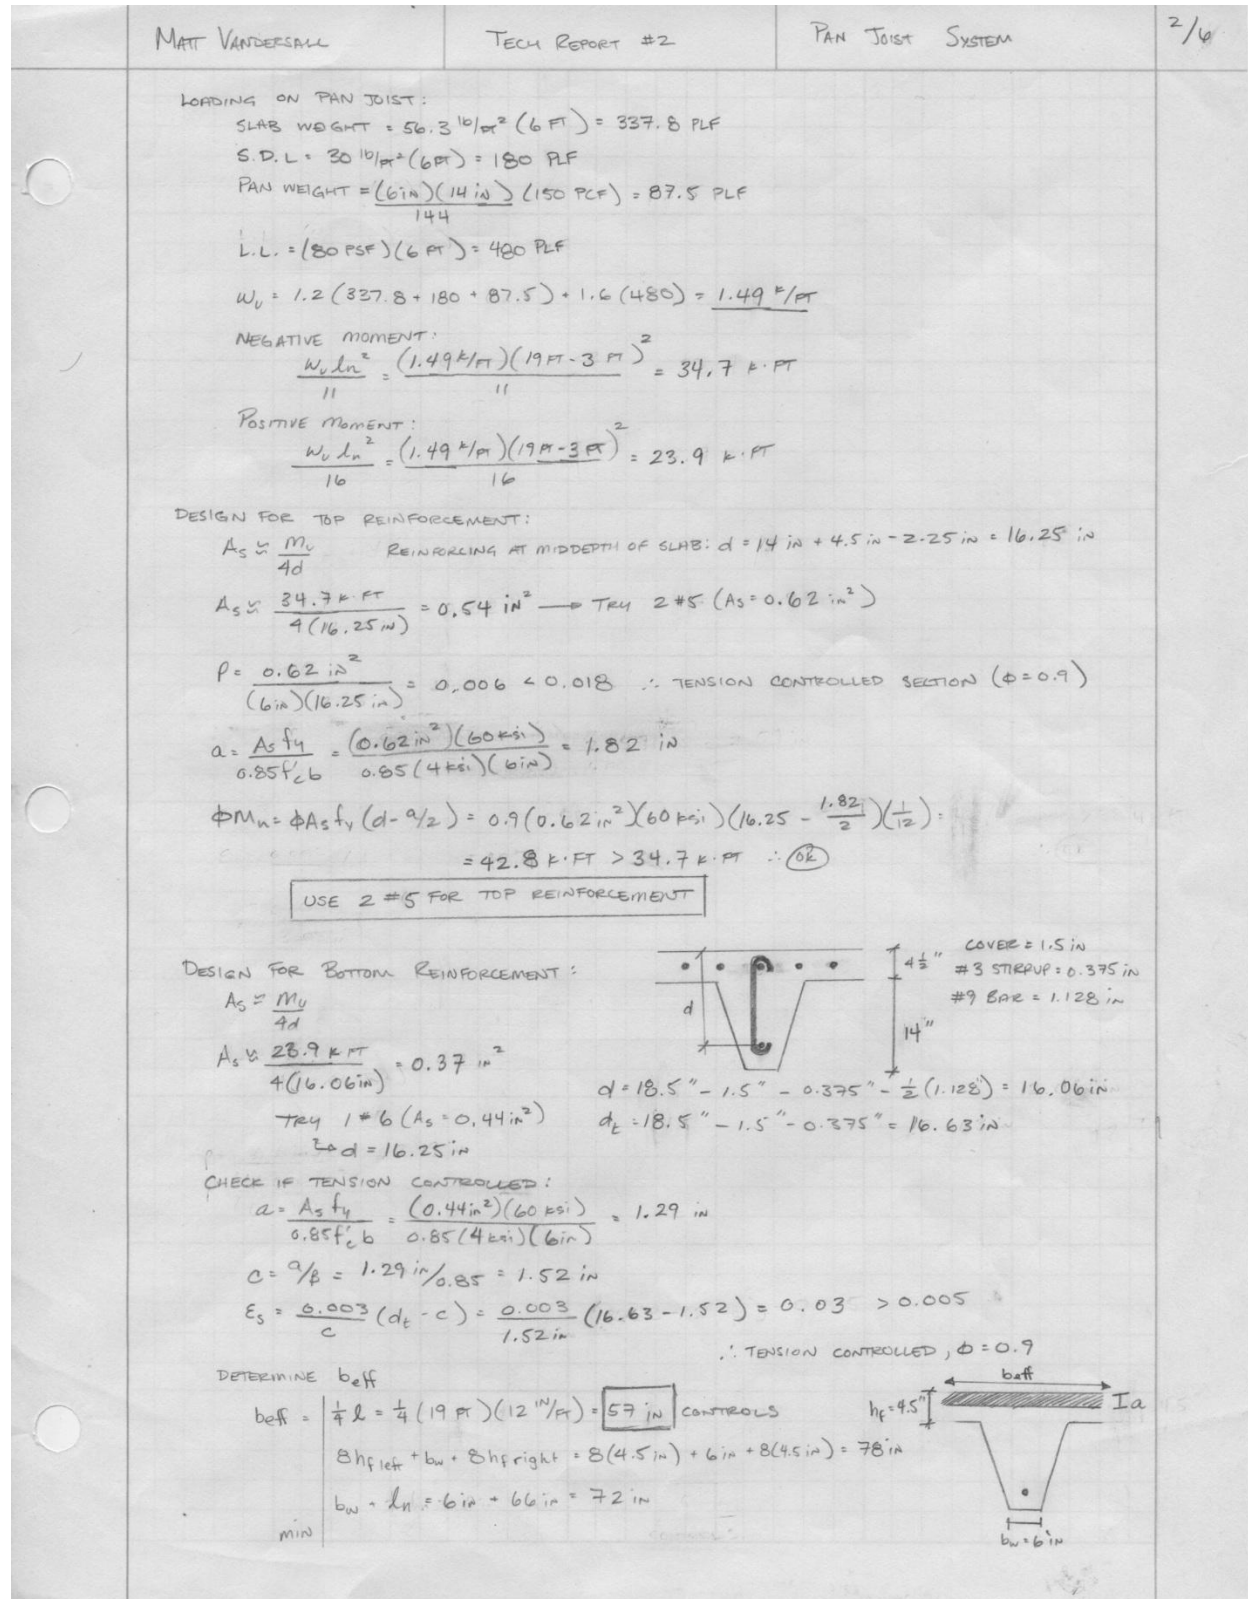 MATT VANDERSALL TECH REPORT #2 PAN JOIST SYSTEM 2/6
LOADING ON PAN JOIST:
SLAB WEIGHT = 56.3 lb/FT² (6 FT) = 337.8 PLF
S.D.L = 30 lb/FT² (6 FT) = 180 PLF
PAN WEIGHT = (6 in)(14 in)/144 (150 PCF) = 87.5 PLF
L.L. = (80 PSF)(6 FT) = 480 PLF
Wu = 1.2 (337.8 + 180 + 87.5) + 1.6 (480) = 1.49 k/FT
NEGATIVE MOMENT:
Wu ln²/11 = (1.49 k/FT)(19 FT - 3 FT)²/11 = 34.7 k·FT
POSITIVE MOMENT:
Wu ln²/16 = (1.49 k/FT)(19 FT - 3 FT)²/16 = 23.9 k·FT
DESIGN FOR TOP REINFORCEMENT:
As ≈ Mu/4d REINFORCING AT MIDDEPTH OF SLAB: d = 14 in + 4.5 in - 2.25 in = 16.25 in
As ≈ 34.7 k·FT/4(16.25 in) = 0.54 in² → TRY 2 #5 (As = 0.62 in²)
ρ = 0.62 in²/(6 in)(16.25 in) = 0.006 < 0.018 ∴ TENSION CONTROLLED SECTION (φ = 0.9)
a = As fy/0.85f'c b = (0.62 in²)(60 ksi)/0.85(4 ksi)(6 in) = 1.82 in
φMn = φAs fy (d - a/2) = 0.9 (0.62 in²)(60 ksi)(16.25 - 1.82/2)(1/12) =
= 42.8 k·FT > 34.7 k·FT ∴ OK
USE 2 #5 FOR TOP REINFORCEMENT
COVER = 1.5 in
4 1/2" #3 STIRRUP = 0.375 in
#9 BAR = 1.128 in
d
14"
DESIGN FOR BOTTOM REINFORCEMENT:
As ≈ Mu/4d
As ≈ 23.9 k·FT/4(16.06 in) = 0.37 in²
d = 18.5" - 1.5" - 0.375" - 1/2 (1.128) = 16.06 in
TRY 1 #6 (As = 0.44 in²) dt = 18.5" - 1.5" - 0.375" = 16.63 in
↳ d = 16.25 in
CHECK IF TENSION CONTROLLED:
a = As fy/0.85f'c b = (0.44 in²)(60 ksi)/0.85(4 ksi)(6 in) = 1.29 in
c = a/β = 1.29 in/0.85 = 1.52 in
εs = 0.003/c (dt - c) = 0.003/1.52 in (16.63 - 1.52) = 0.03 > 0.005
∴ TENSION CONTROLLED, φ = 0.9
DETERMINE beff
beff = 1/4 l = 1/4 (19 FT)(12 IN/FT) = 57 in CONTROLS
8hf left + bw + 8hf right = 8(4.5 in) + 6 in + 8(4.5 in) = 78 in
bw + ln = 6 in + 66 in = 72 in
min
beff
hf = 4.5" a
bw = 6 in